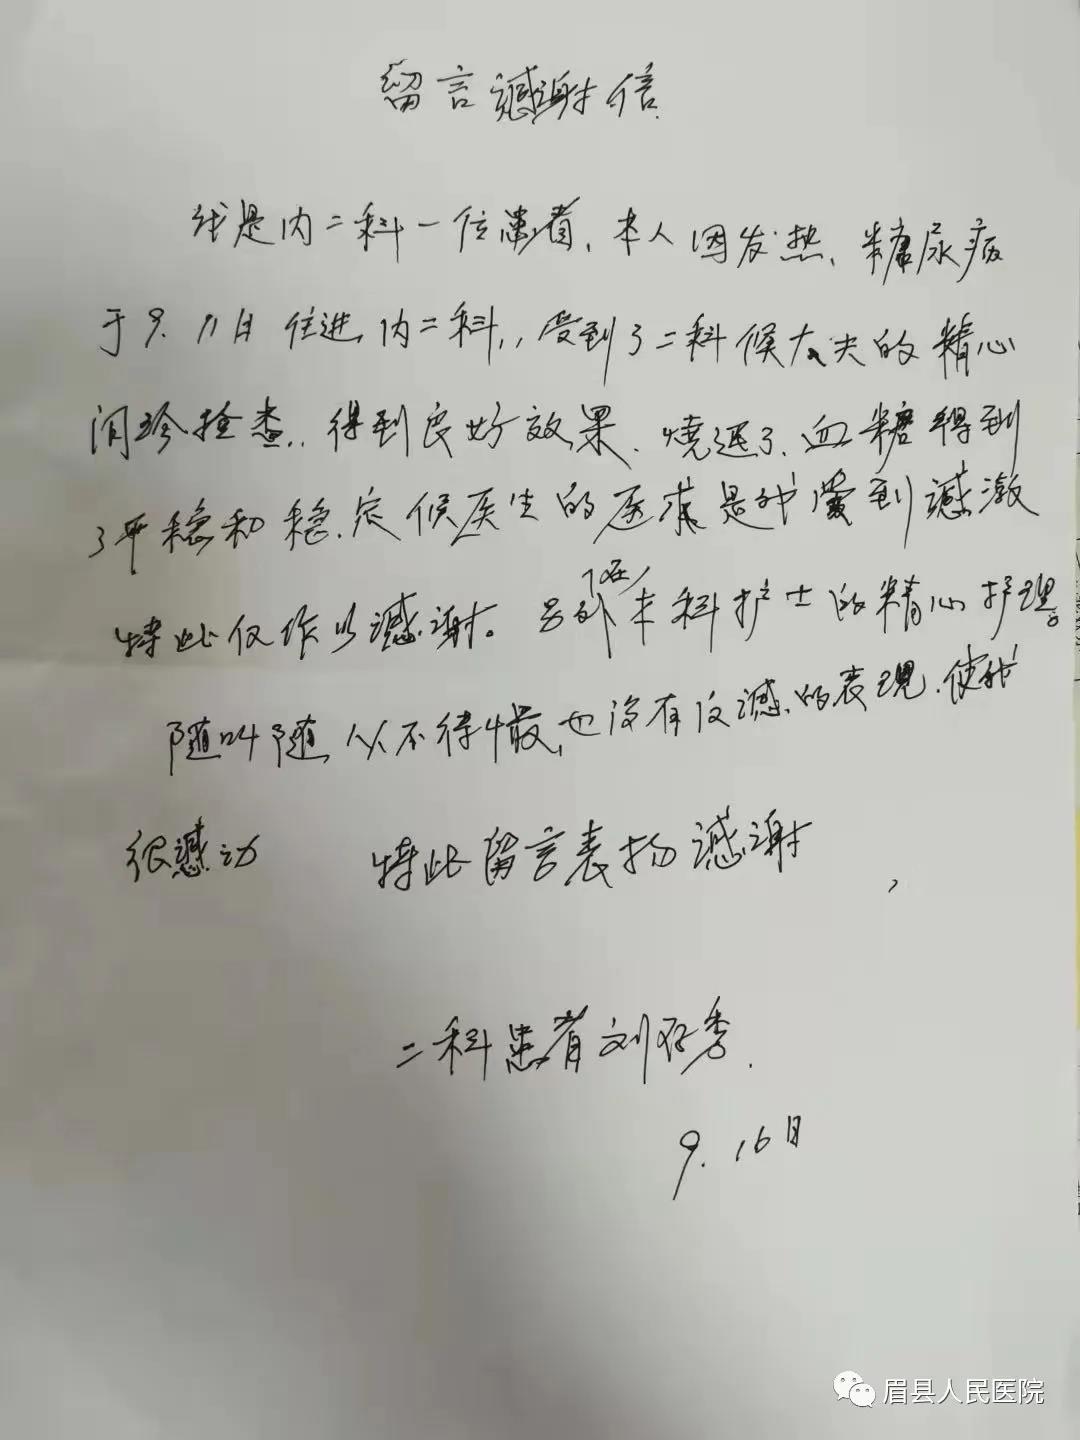 留言感谢信
我是内二科一位患者、本人因发热、糖尿病
于9.11日住进内二科,,受到了二科候大夫的精心
问珍捡查,.得到良好效果.烧退了.血糖得到
了平稳和稳.定候医生的医术是我受到感激
特此仅作以感谢。另外在本科护士的精心护理。
随叫随 从不待慢,也没有反感的表现.使我
很感动 特此留言表扬感谢,
二科患者刘存秀.
9.16日
眉县人民医院